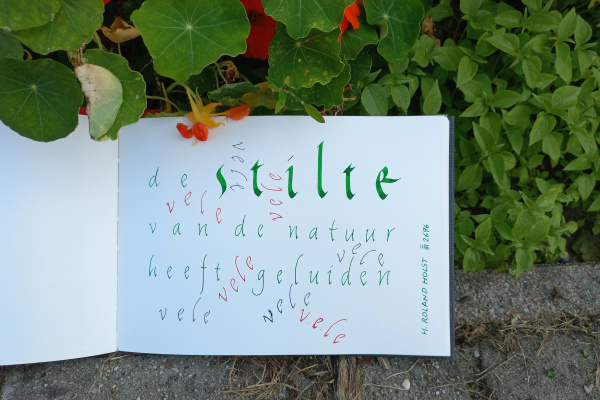 de stilte
vele
vele
vele
van de natuur
vele
heeft geluiden
vele
vele
vele
vele
H. ROLAND HOLST 2696